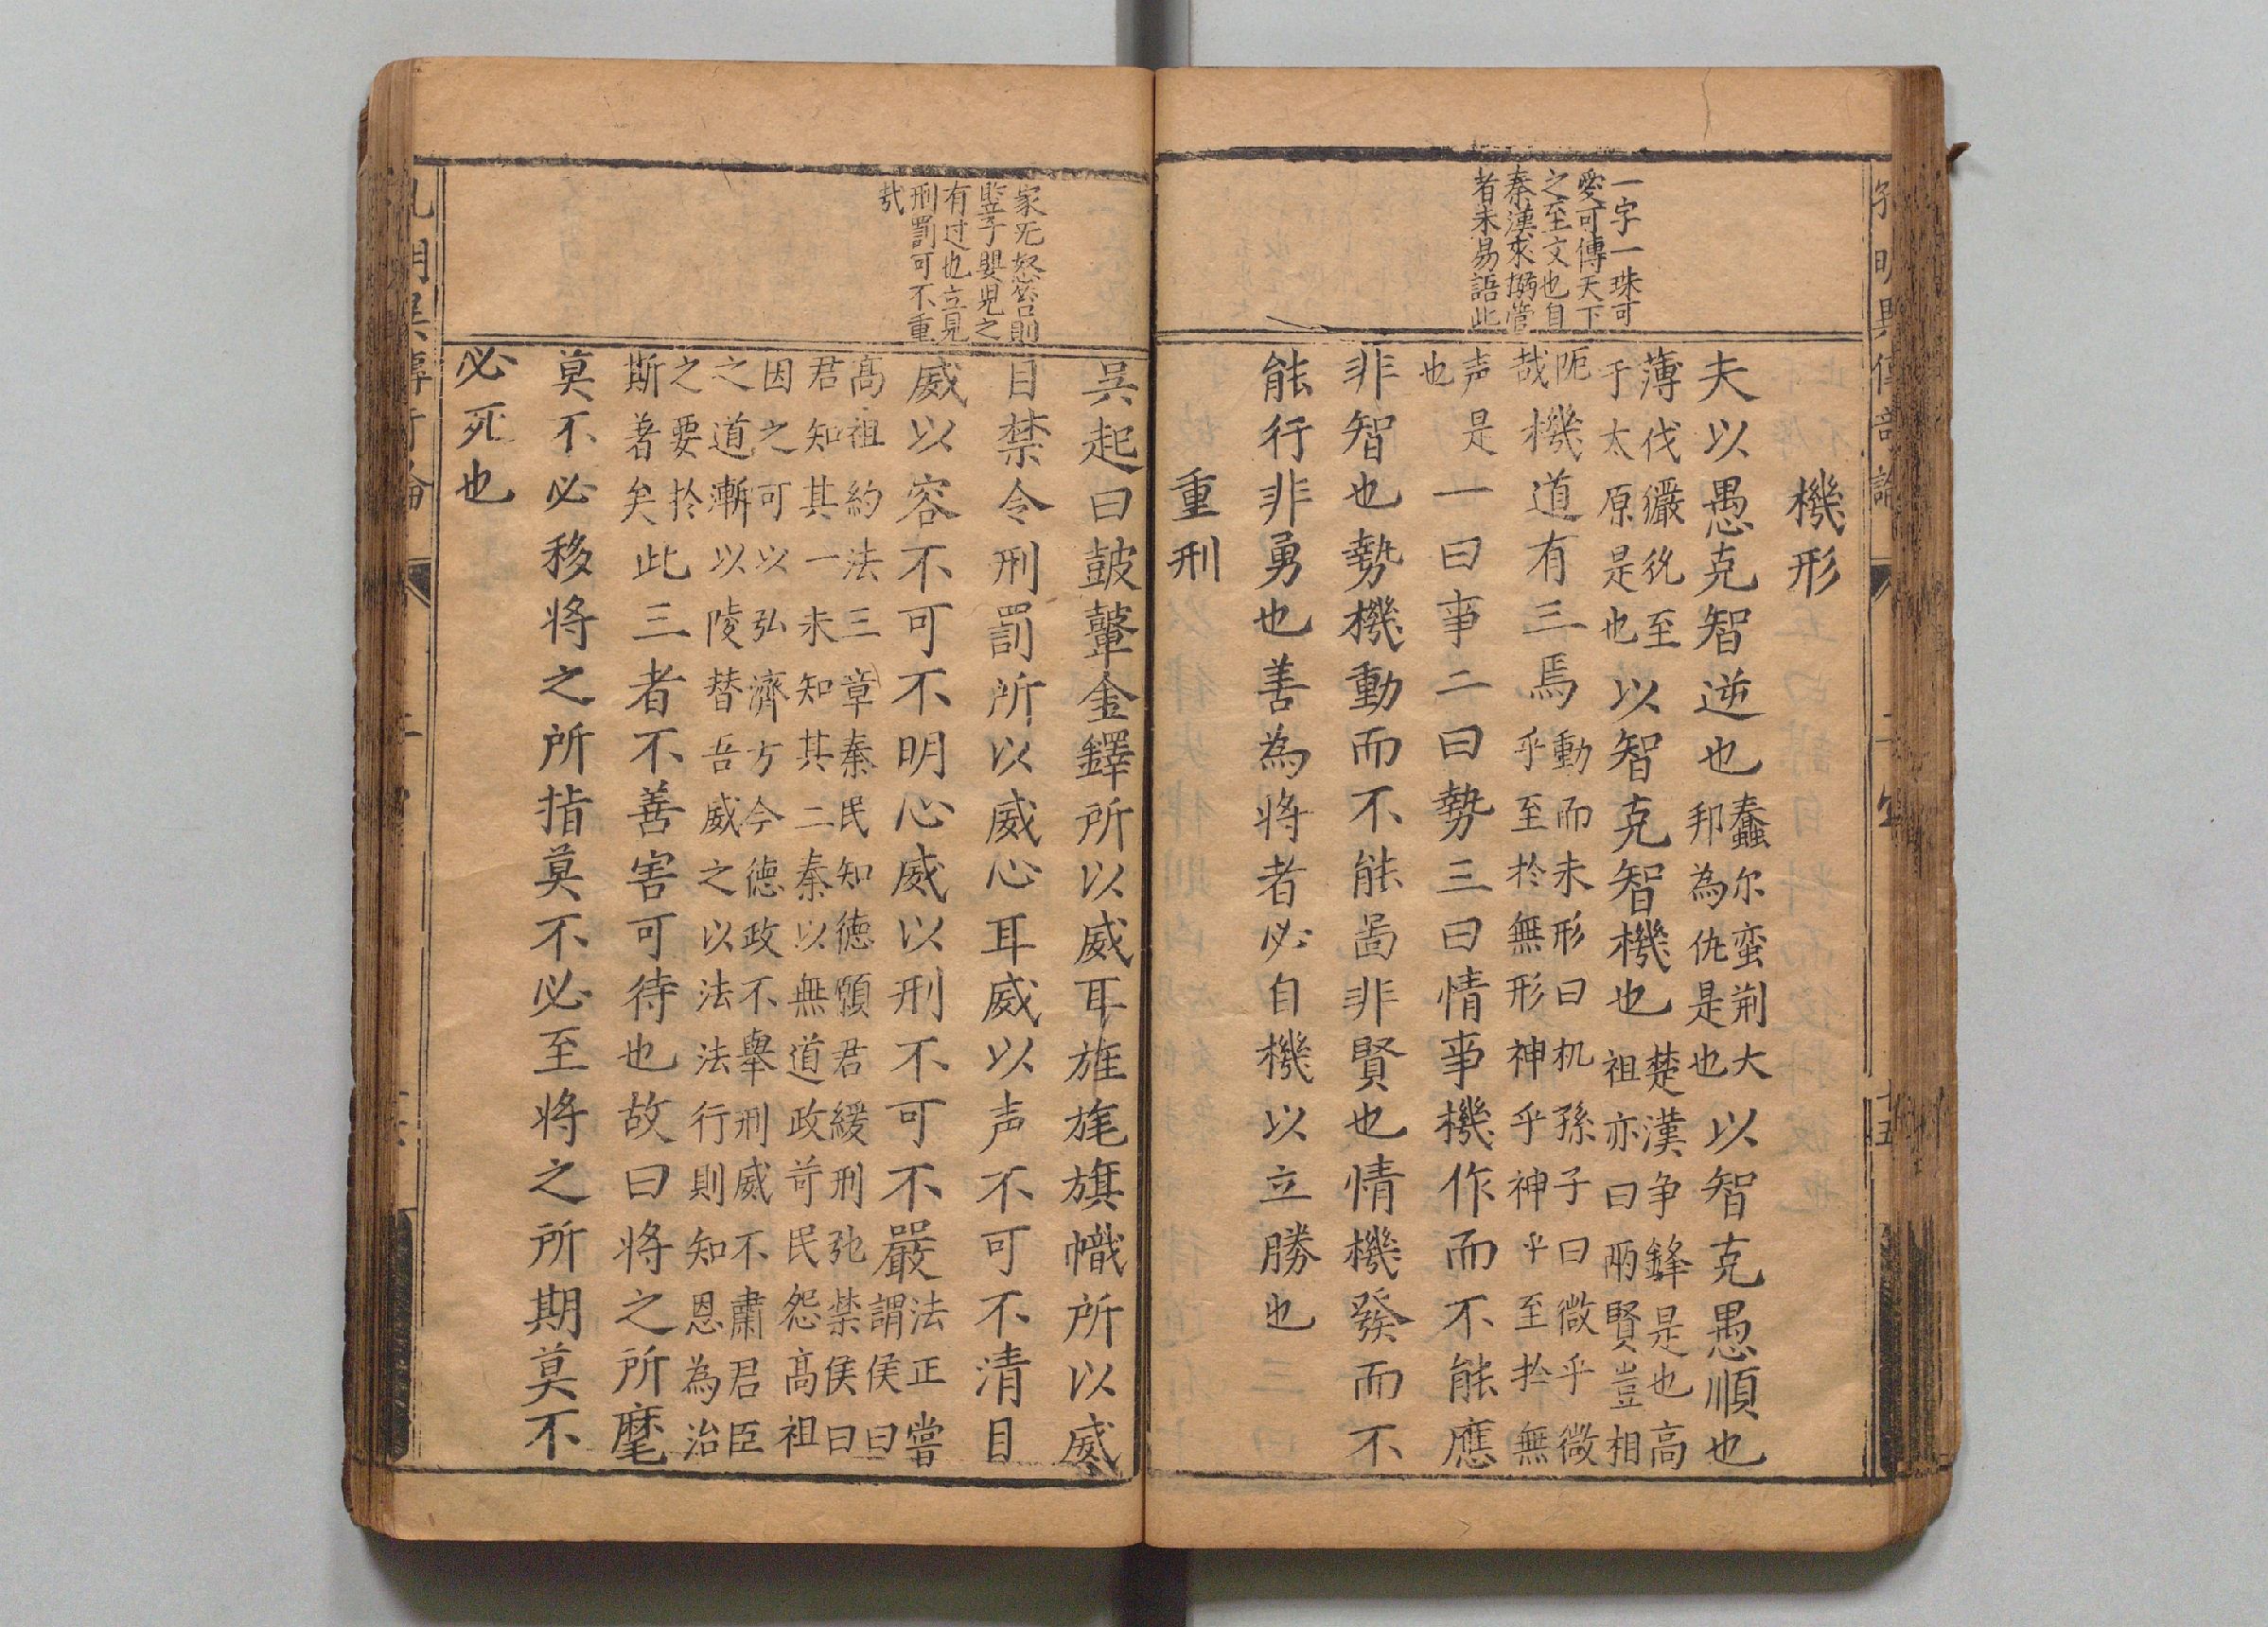 一字一珠可
愛可傳天下
之至文也自
秦漢求搦管
者未易語此
機形
夫以愚克智逆也蠢尔蛮荆大邦為仇是也以智克愚順也
薄伐玁狁至于太原是也以智克智機也楚漢争鋒是也高祖亦曰兩賢豈相
阨哉機道有三焉動而未形曰机孫子曰微乎微乎至於無形神乎神乎至於無
声是也一曰事二曰勢三曰情事機作而不能應
非智也勢機動而不能啚非賢也情機發而不
能行非勇也善為将者必自機以立勝也
重刑
家旡怒笞則
竪子嬰兒之
有过也立見
刑罰可不重
哉
吳起曰鼓鼙金鐸所以威耳旌旄旗幟所以威
目禁令刑罰所以威心耳威以声不可不清目
威以容不可不明心威以刑不可不嚴法正嘗謂侯曰
高祖約法三章秦民知德頋君緩刑弛禁侯曰君知其一未知其二秦以無道政苛民怨高祖
因之可以弘濟方今德政不舉刑威不肅君臣之道漸以陵替吾威之以法法行則知恩為治
之要於斯著矣此三者不善害可待也故曰将之所麾
莫不必移将之所指莫不必至将之所期莫不
必死也